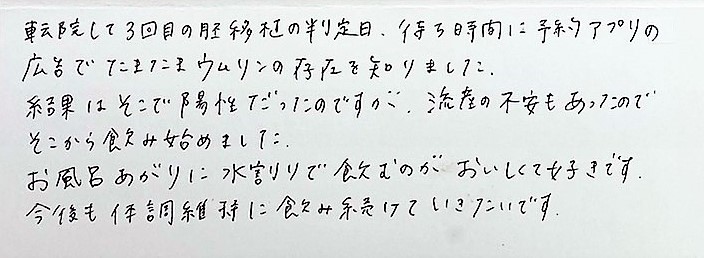 転院して3回目の胚移植の判定日、待ち時間に予約アプリの
広告でたまたまウムリンの存在を知りました。
結果はそこで陽性だったのですが、流産の不安もあったので
そこから飲み始めました。
お風呂あがりに水割りで飲むのがおいしくて好きです。
今後も体調維持に飲み続けていきたいです。